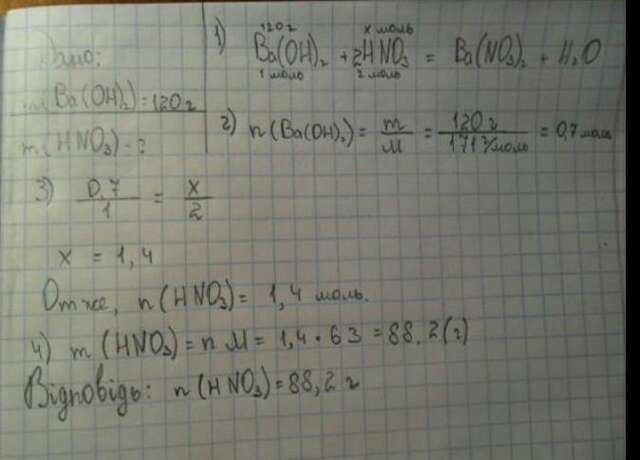 Дано:
m(Ba(OH)₂) = 120 г
m(HNO₃) - ?
1) 120 г x моль
Ba(OH)₂ + 2HNO₃ = Ba(NO₃)₂ + H₂O
1 моль 2 моль
2) n(Ba(OH)₂) = m/M = 120 г / 171 г/моль = 0,7 моль
3) 0,7/1 = x/2
x = 1,4
Отже, n(HNO₃) = 1,4 моль.
4) m(HNO₃) = n M = 1,4 · 63 = 88,2 (г)
Відповідь: n(HNO₃) = 88,2 г